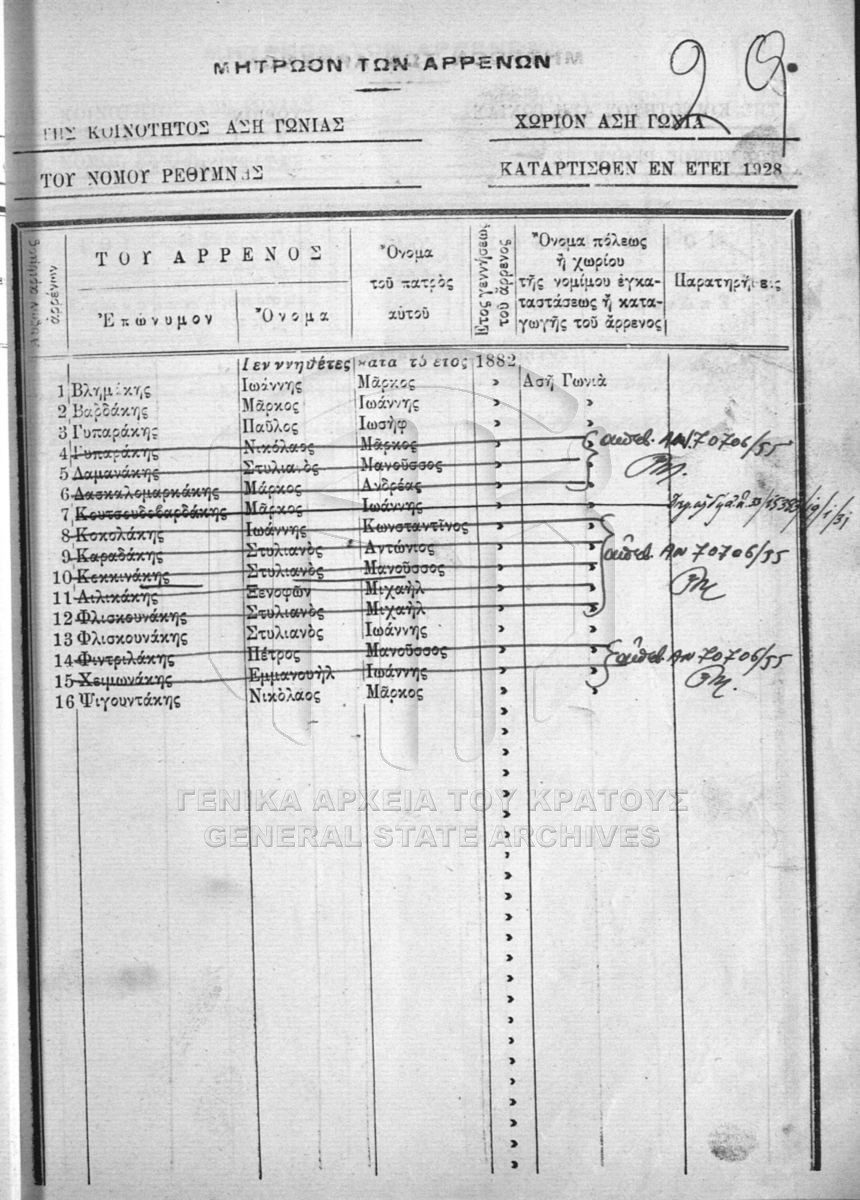 29.
ΜΗΤΡΩΟΝ ΤΩΝ ΑΡΡΕΝΩΝ
ΤΗΣ ΚΟΙΝΟΤΗΤΟΣ ΑΣΗ ΓΩΝΙΑΣ
ΧΩΡΙΟΝ ΑΣΗ ΓΩΝΙΑ
ΤΟΥ ΝΟΜΟΥ ΡΕΘΥΜΝΗΣ
ΚΑΤΑΡΤΙΣΘΕΝ ΕΝ ΕΤΕΙ 1928
Αὔξων ἀριθμὸς ἀρρένων
ΤΟΥ ΑΡΡΕΝΟΣ
Ἐπώνυμον
Ὄνομα
Ὄνομα τοῦ πατρὸς αὐτοῦ
Ἔτος γεννήσεως τοῦ ἄρρενος
Ὄνομα πόλεως ἢ χωρίου τῆς νομίμου ἐγκαταστάσεως ἢ καταγωγῆς τοῦ ἄρρενος
Παρατηρήσεις
Γεννηθέτες κατα τὸ ετος 1882
1 Βλημάκης Ἰωάννης Μᾶρκος » Ασὴ Γωνιὰ
2 Βαρδάκης Μᾶρκος Ἰωάννης » »
3 Γυπαράκης Παῦλος Ἰωσὴφ » »
4 Γυπαράκης Νικόλαος Μᾶρκος » » ΑΝ. 70706/55
5 Δαμανάκης Στυλιανὸς Μανοῦσσος » »
6 Δασκαλομαρκάκης Μάρκος Ανδρέας » »
7 Κουτσουδοβαρδάκης Μᾶρκος Ἰωάννης » »
8 Κοκολάκης Ἰωάννης Κωνσταντῖνος » »
9 Καραδάκης Στυλιανὸς Αντώνιος » » ΑΝ 70706/55
10 Κεκκινάκης Στυλιανὸς Μανοῦσσος » »
11 Λιλικάκης Ξενοφῶν Μιχαὴλ » »
12 Φλισκουνάκης Στυλιανὸς Μιχαὴλ » »
13 Φλισκουνάκης Στυλιανὸς Ἰωάννης » »
14 Φιντριλάκης Πέτρος Μανοῦσσος » » ΑΝ 70706/55
15 Χειμωνάκης Εμμανουὴλ Ἰωάννης » »
16 Ψιγουντάκης Νικόλαος Μᾶρκος » »
ΓΕΝΙΚΑ ΑΡΧΕΙΑ ΤΟΥ ΚΡΑΤΟΥΣ
GENERAL STATE ARCHIVES